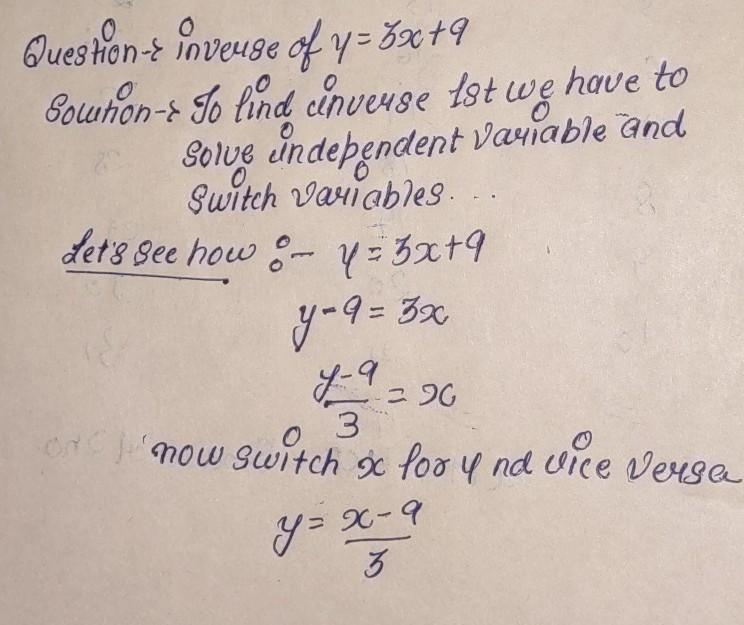 Question→ inverse of y = 3x+9
Solution→ To find inverse 1st we have to
solve independent variable and
switch variables...
Let's see how :- y = 3x+9
y-9 = 3x
y-9/3 = x
now switch x for y nd vice versa
y = x-9/3